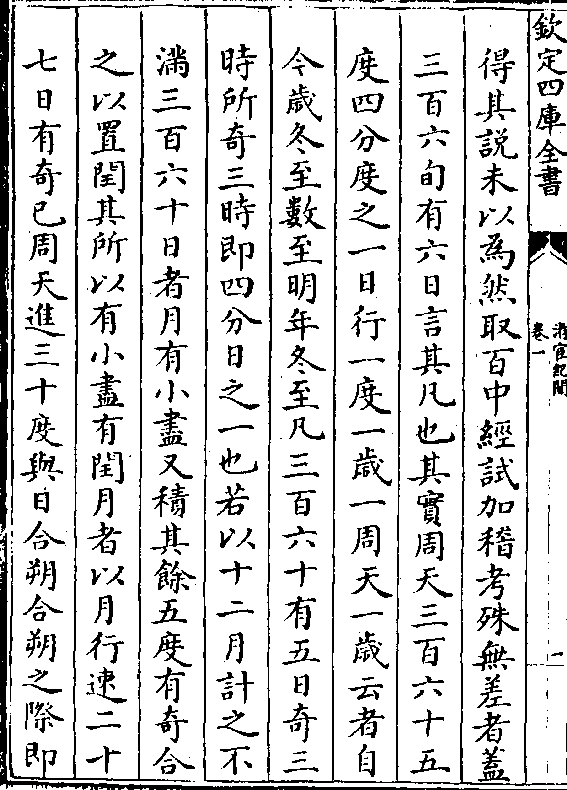 欽定四庫全書
卷一
得其說未以為然取百中經試加稽考殊無差者蓋
三百六旬有六日言其凡也其實周天三百六十五
度四分度之一日行一度一歳一周天一歳云者自
今歳冬至數至明年冬至凡三百六十有五日奇三
時所奇三時即四分日之一也若以十二月計之不
滿三百六十日者月有小盡又積其餘五度有奇合
之以置閏其所以有小盡有閏月者以月行速二十
七日有奇已周天進三十度與日合朔合朔之際即